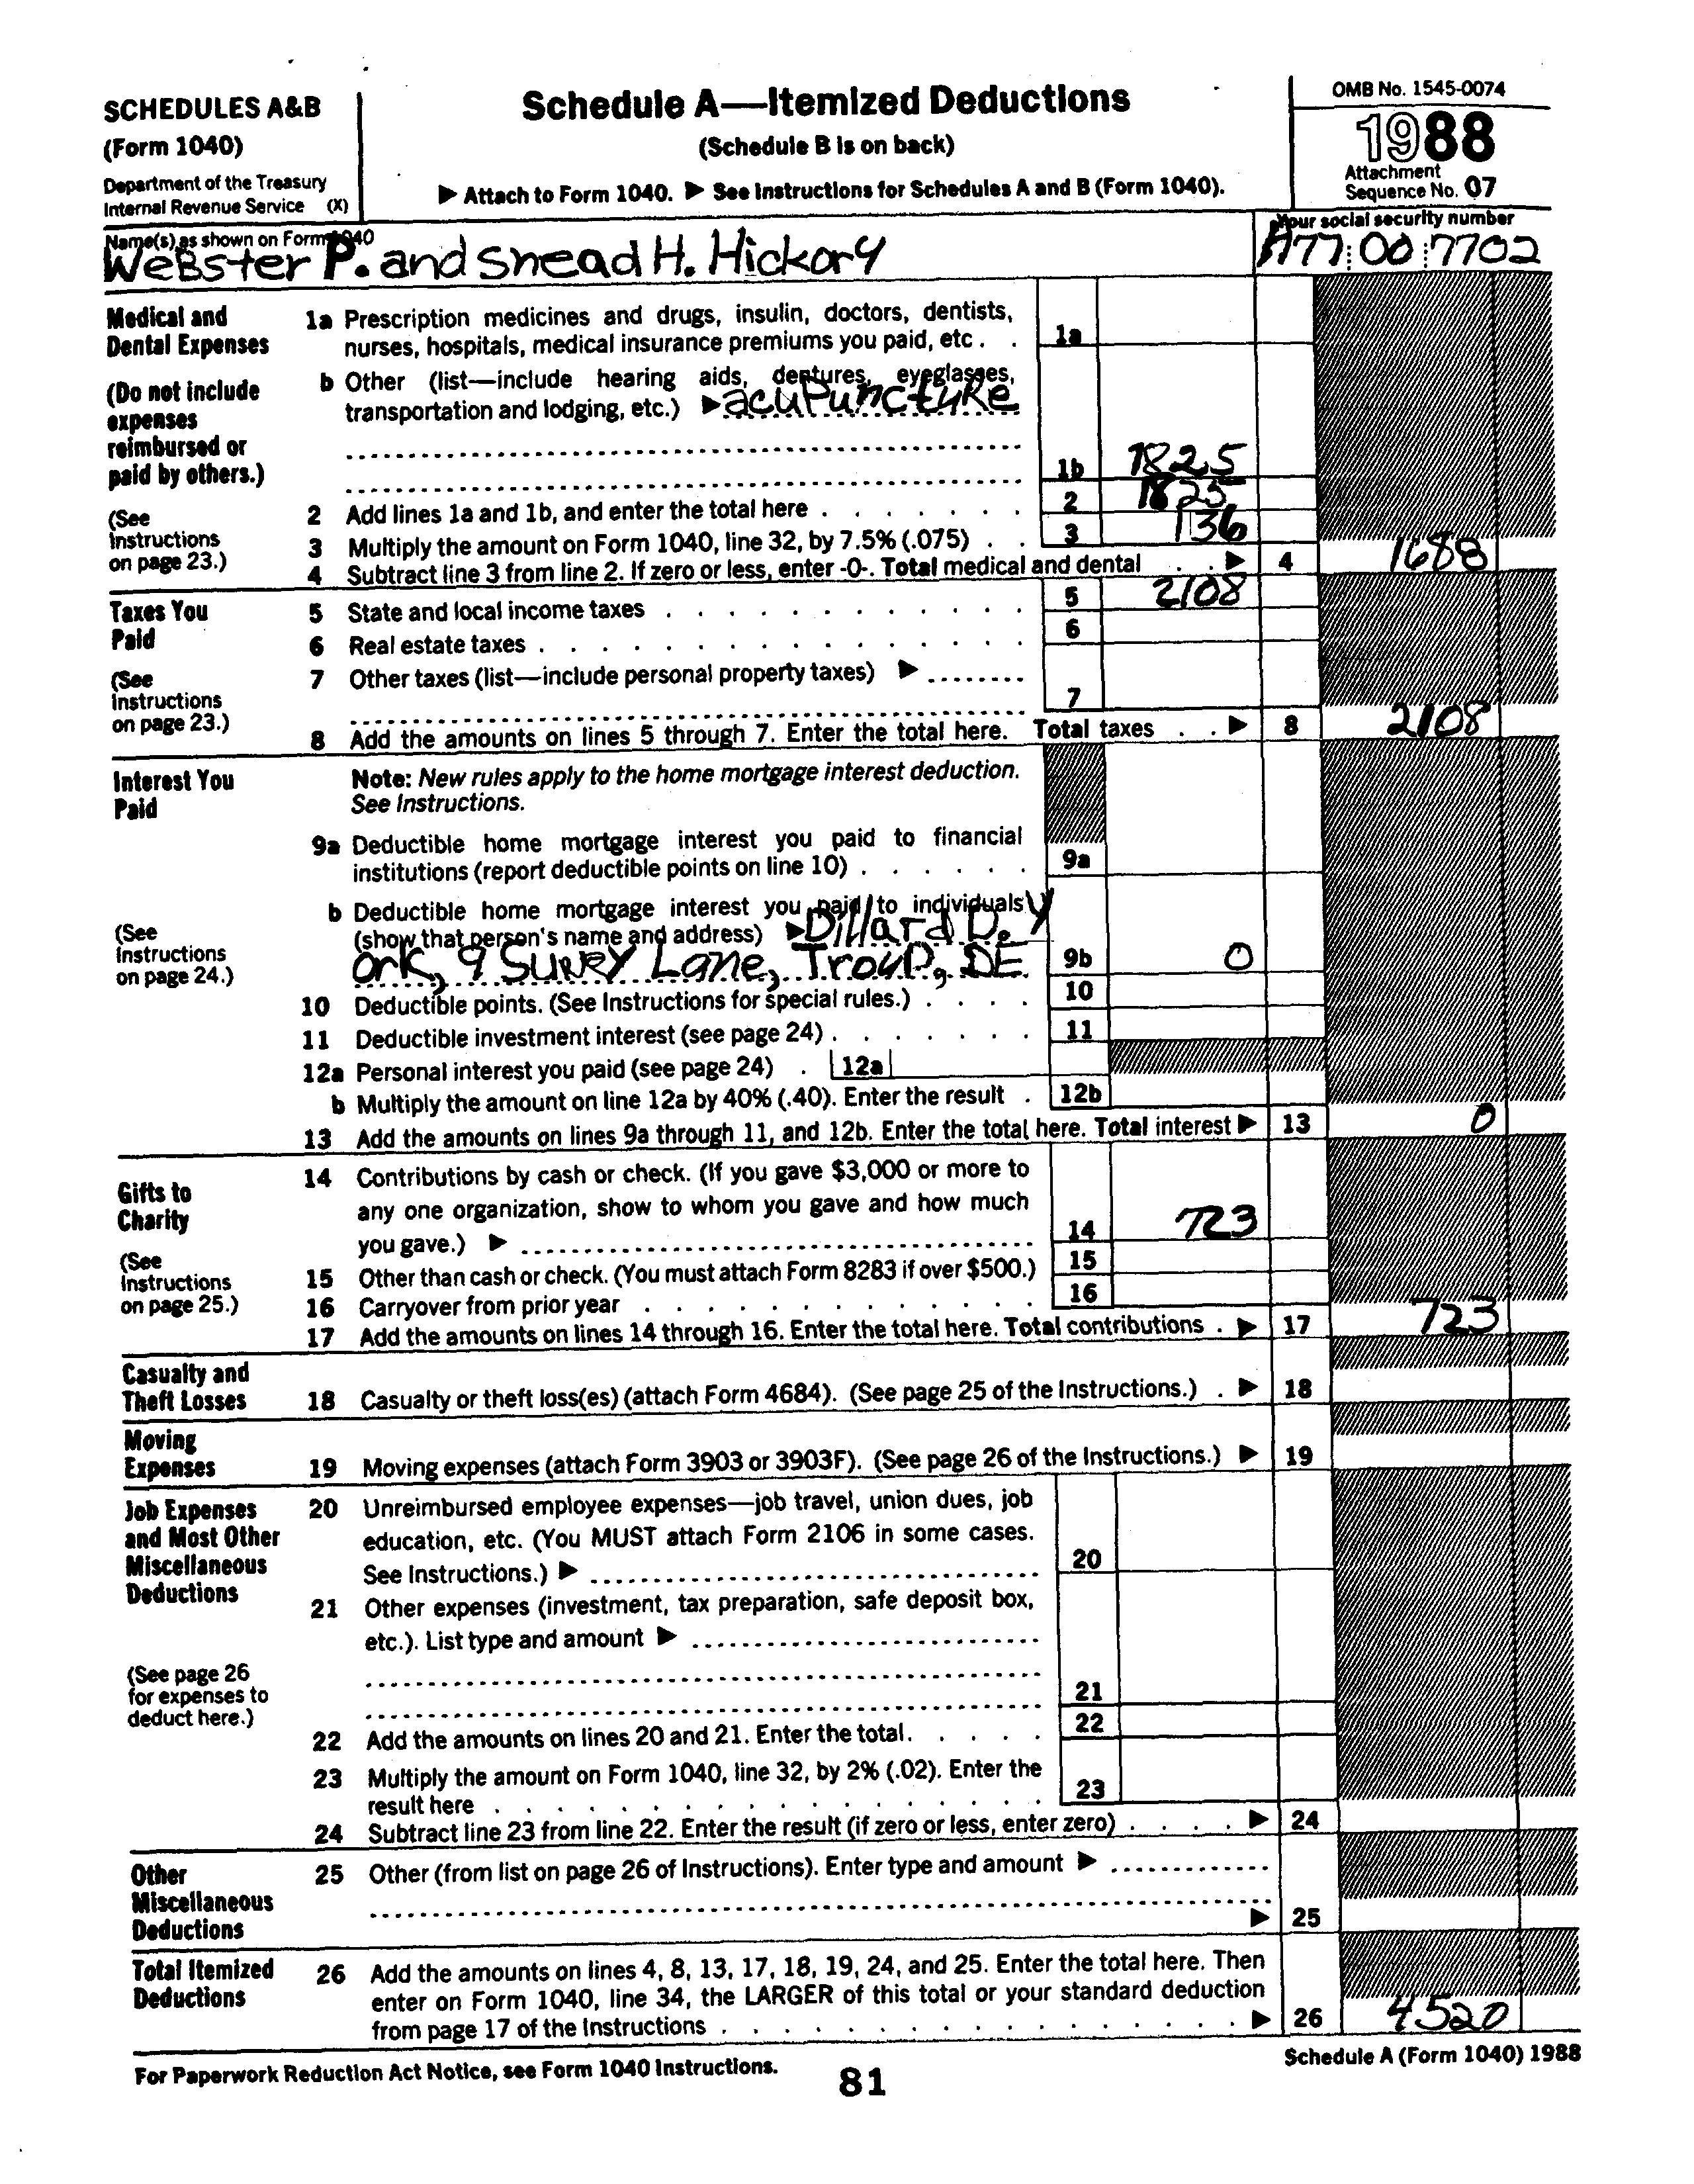 SCHEDULES A&B
(Form 1040)
Department of the Treasury
Internal Revenue Service (X)
Schedule A—Itemized Deductions
(Schedule B is on back)
▶ Attach to Form 1040. ▶ See Instructions for Schedules A and B (Form 1040).
OMB No. 1545-0074
1988
Attachment
Sequence No. 07
Name(s) as shown on Form 1040
Webster P. and Snead H. Hickory
Your social security number
77 00 7702
Medical and
Dental Expenses
(Do not include
expenses
reimbursed or
paid by others.)
(See
Instructions
on page 23.)
1a Prescription medicines and drugs, insulin, doctors, dentists,
nurses, hospitals, medical insurance premiums you paid, etc . . 1a
b Other (list—include hearing aids, dentures, eyeglasses,
transportation and lodging, etc.) ▶ acupuncture
1b 1825
2 Add lines 1a and 1b, and enter the total here . . . . . . . 2 1825
3 Multiply the amount on Form 1040, line 32, by 7.5% (.075) . . 3 136
4 Subtract line 3 from line 2. If zero or less, enter -0-. Total medical and dental . . ▶ 4 1688
Taxes You
Paid
(See
Instructions
on page 23.)
5 State and local income taxes . . . . . . . . . . . . 5 2108
6 Real estate taxes . . . . . . . . . . . . . . . 6
7 Other taxes (list—include personal property taxes) ▶
7
8 Add the amounts on lines 5 through 7. Enter the total here. Total taxes . . ▶ 8 2108
Interest You
Paid
(See
Instructions
on page 24.)
Note: New rules apply to the home mortgage interest deduction.
See Instructions.
9a Deductible home mortgage interest you paid to financial
institutions (report deductible points on line 10) . . . . . . 9a
b Deductible home mortgage interest you paid to individuals
(show that person's name and address) ▶ Dillard D. Y
ork, 9 Surrey Lane, Troup, DE 9b 0
10 Deductible points. (See Instructions for special rules.) . . . . 10
11 Deductible investment interest (see page 24) . . . . . . . 11
12a Personal interest you paid (see page 24) . 12a
b Multiply the amount on line 12a by 40% (.40). Enter the result . 12b
13 Add the amounts on lines 9a through 11, and 12b. Enter the total here. Total interest ▶ 13 0
Gifts to
Charity
(See
Instructions
on page 25.)
14 Contributions by cash or check. (If you gave $3,000 or more to
any one organization, show to whom you gave and how much
you gave.) ▶ 14 723
15 Other than cash or check. (You must attach Form 8283 if over $500.) 15
16 Carryover from prior year . . . . . . . . . . . . . 16
17 Add the amounts on lines 14 through 16. Enter the total here. Total contributions . ▶ 17 723
Casualty and
Theft Losses
18 Casualty or theft loss(es) (attach Form 4684). (See page 25 of the Instructions.) . ▶ 18
Moving
Expenses
19 Moving expenses (attach Form 3903 or 3903F). (See page 26 of the Instructions.) ▶ 19
Job Expenses
and Most Other
Miscellaneous
Deductions
(See page 26
for expenses to
deduct here.)
20 Unreimbursed employee expenses—job travel, union dues, job
education, etc. (You MUST attach Form 2106 in some cases.
See Instructions.) ▶ 20
21 Other expenses (investment, tax preparation, safe deposit box,
etc.). List type and amount ▶
21
22 Add the amounts on lines 20 and 21. Enter the total. . . . . 22
23 Multiply the amount on Form 1040, line 32, by 2% (.02). Enter the
result here . . . . . . . . . . . . . . . . . 23
24 Subtract line 23 from line 22. Enter the result (if zero or less, enter zero) . . . . ▶ 24
Other
Miscellaneous
Deductions
25 Other (from list on page 26 of Instructions). Enter type and amount ▶
▶ 25
Total Itemized
Deductions
26 Add the amounts on lines 4, 8, 13, 17, 18, 19, 24, and 25. Enter the total here. Then
enter on Form 1040, line 34, the LARGER of this total or your standard deduction
from page 17 of the Instructions . . . . . . . . . . . . . . . . . ▶ 26 4520
For Paperwork Reduction Act Notice, see Form 1040 Instructions.
Schedule A (Form 1040) 1988
81